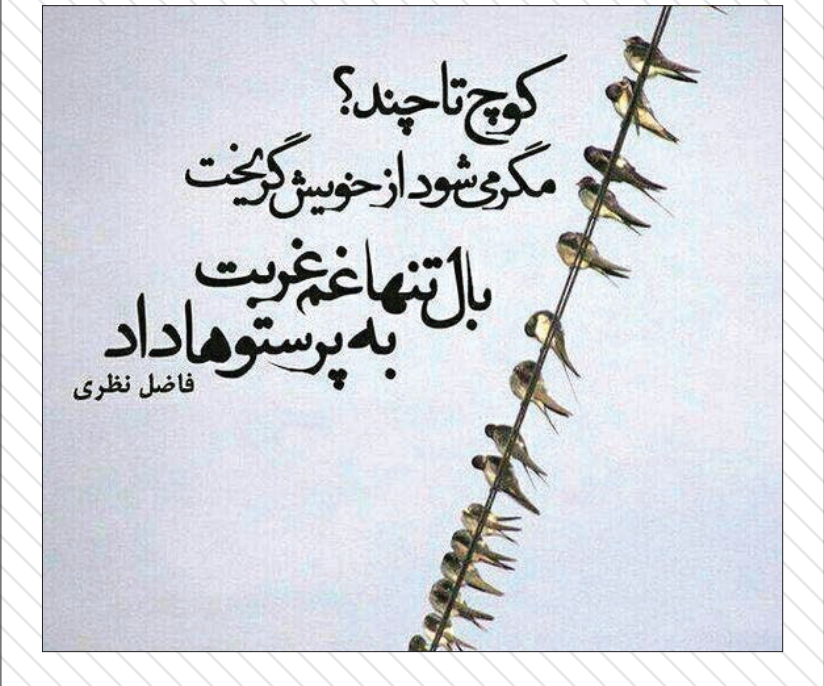 کوچ تا چند؟
مگر می‌شود از خویش گریخت
بال تنها غم غربت
به پرستوها داد
فاضل نظری